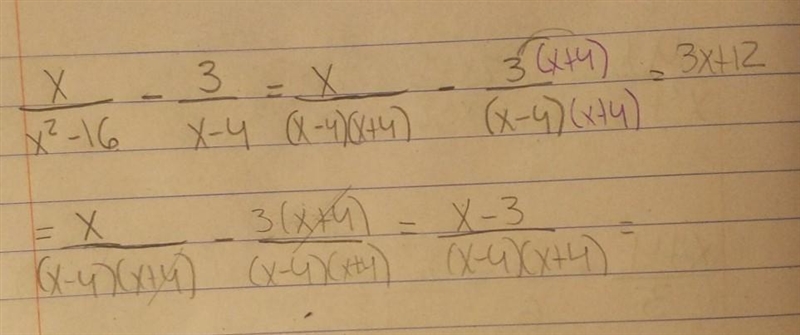 x/(x² - 16) - 3/(x-4) = x/((x-4)(x+4)) - 3(x+4)/((x-4)(x+4)) = 3x+12
= x/((x-4)(x+4)) - 3(x+4)/((x-4)(x+4)) = x-3/((x-4)(x+4)) =